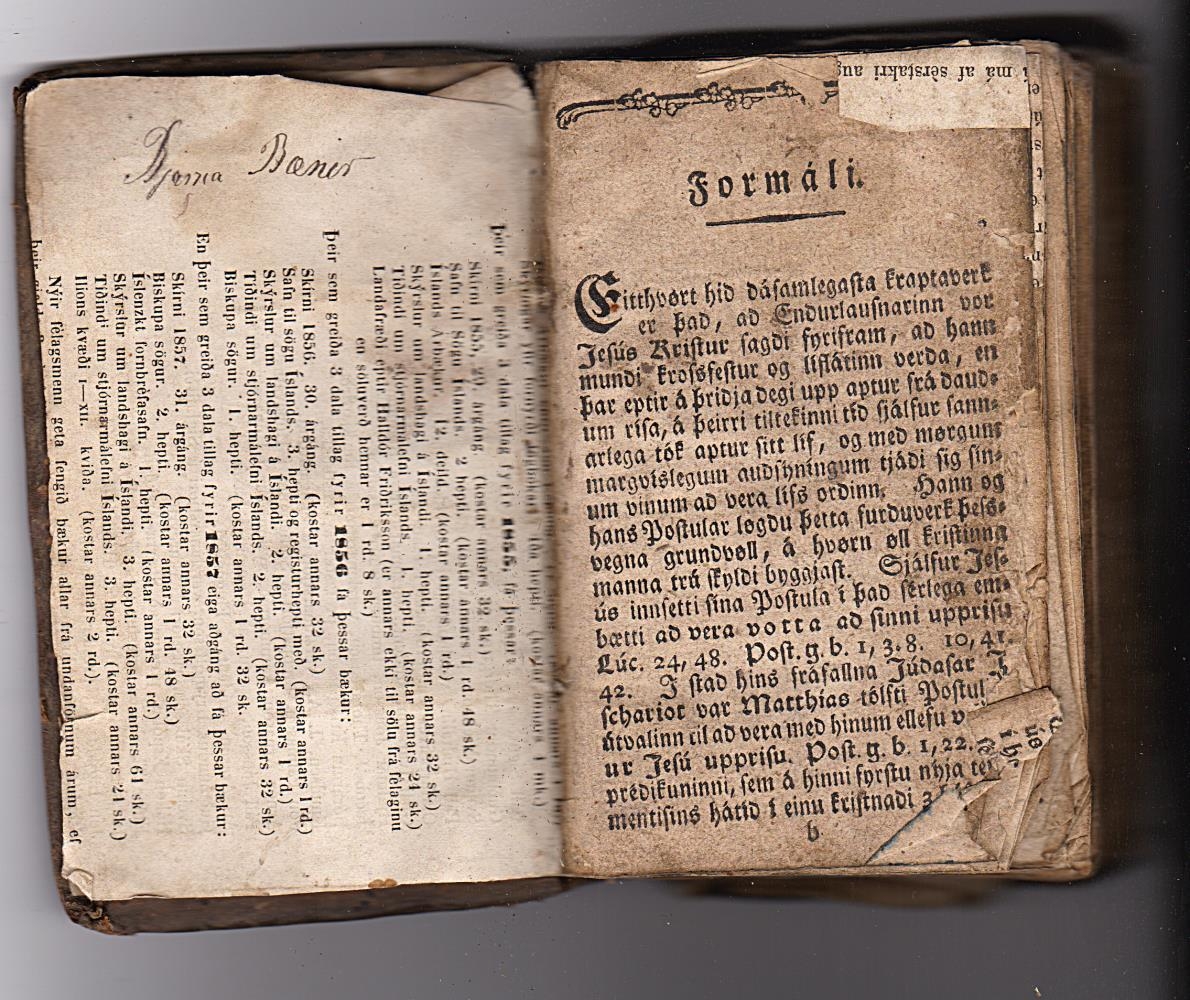 Bjarna Bænir
Þeir sem greiða 3 dala tillag fyrir 1855, fá þessar:
Skírni 1855, 29. árgáng (kostar annars 32 sk.)
Safn til Sögu Íslands. 2 hepti. (kostar annars 1 rd. 48 sk.)
Íslands Árbækur. 12. deild. (kostar annars 1 rd.)
Skýrslur um landshagi á Íslandi. 1. hepti. (kostar annars 32 sk.)
Tíðindi um stjórnarmálefni Íslands. 1. hepti. (kostar annars 24 sk.)
Landafræði eptir Halldór Friðriksson (er annars ekki til sölu frá félaginu
en söluverð hennar er 1 rd. 8 sk.)
Þeir sem greiða 3 dala tillag fyrir 1856 fá þessar bækur:
Skírni 1856. 30. árgáng. (kostar annars 32 sk.)
Safn til sögu Íslands. 3. hepti og registurhepti með. (kostar annars 1 rd.)
Skýrslur um landshagi á Íslandi. 2. hepti. (kostar annars 1 rd.)
Tíðindi um stjórnarmálefni Íslands. 2. hepti. (kostar annars 32 sk.)
Biskupa sögur. 1. hepti. (kostar annars 1 rd. 32 sk.
En þeir sem greiða 3 dala tillag fyrir 1857 eiga aðgáng að fá þessar bækur:
Skírni 1857. 31. árgáng. (kostar annars 32 sk.)
Biskupa sögur. 2. hepti. (kostar annars 1 rd. 48 sk.)
Íslenzkt fornbréfasafn. 1. hepti. (kostar annars 1 rd.)
Skýrslur um landshagi á Íslandi. 3. hepti. (kostar annars 64 sk.)
Tíðindi um stjórnarmálefni Íslands. 3. hepti. (kostar annars 24 sk.)
Ilíons kvæði I—XII. kviða. (kostar annars 2 rd.).
Nýir félagsmenn geta fengið bækur allar frá undanförnum árum, ef
má af sérstakri aug
Formáli.
Eitthvørt hid dásamlegasta kraptaverk
er þad, ad Endurlausnarinn vor
Jesús Kristur sagdi fyrifram, ad hann
mundi krossfestur og líflátinn verda, en
þar eptir á þridja degi upp aptur frá daud-
um rísa, á þeirri tiltekinni tíd sjálfur sann-
arlega tók aptur sitt líf, og med mørgum
margvíslegum audsýníngum tjádi sig sín-
um vinum ad vera lífs ordinn. Hann og
hans Postular løgdu þetta furduverk þess-
vegna grundvøll, á hvørn øll kristinna
manna trú skyldi byggjast. Sjálfur Jes-
ús innsetti sína Postula í þad sérlega em-
bætti ad vera votta ad sinni upprisu
Lúc. 24, 48. Post. g. b. 1, 3. 8. 10, 41.
42. I stad hins fráfallna Júdasar I
schariot var Matthias tólfti Postul
útvalinn til ad vera med hinum ellefu v
ur Jesú upprisu. Post. g. b. 1, 22.
prédikuninni, sem á hinni fyrstu nýja te
mentisins hátíd í einu kristnadi 3
b